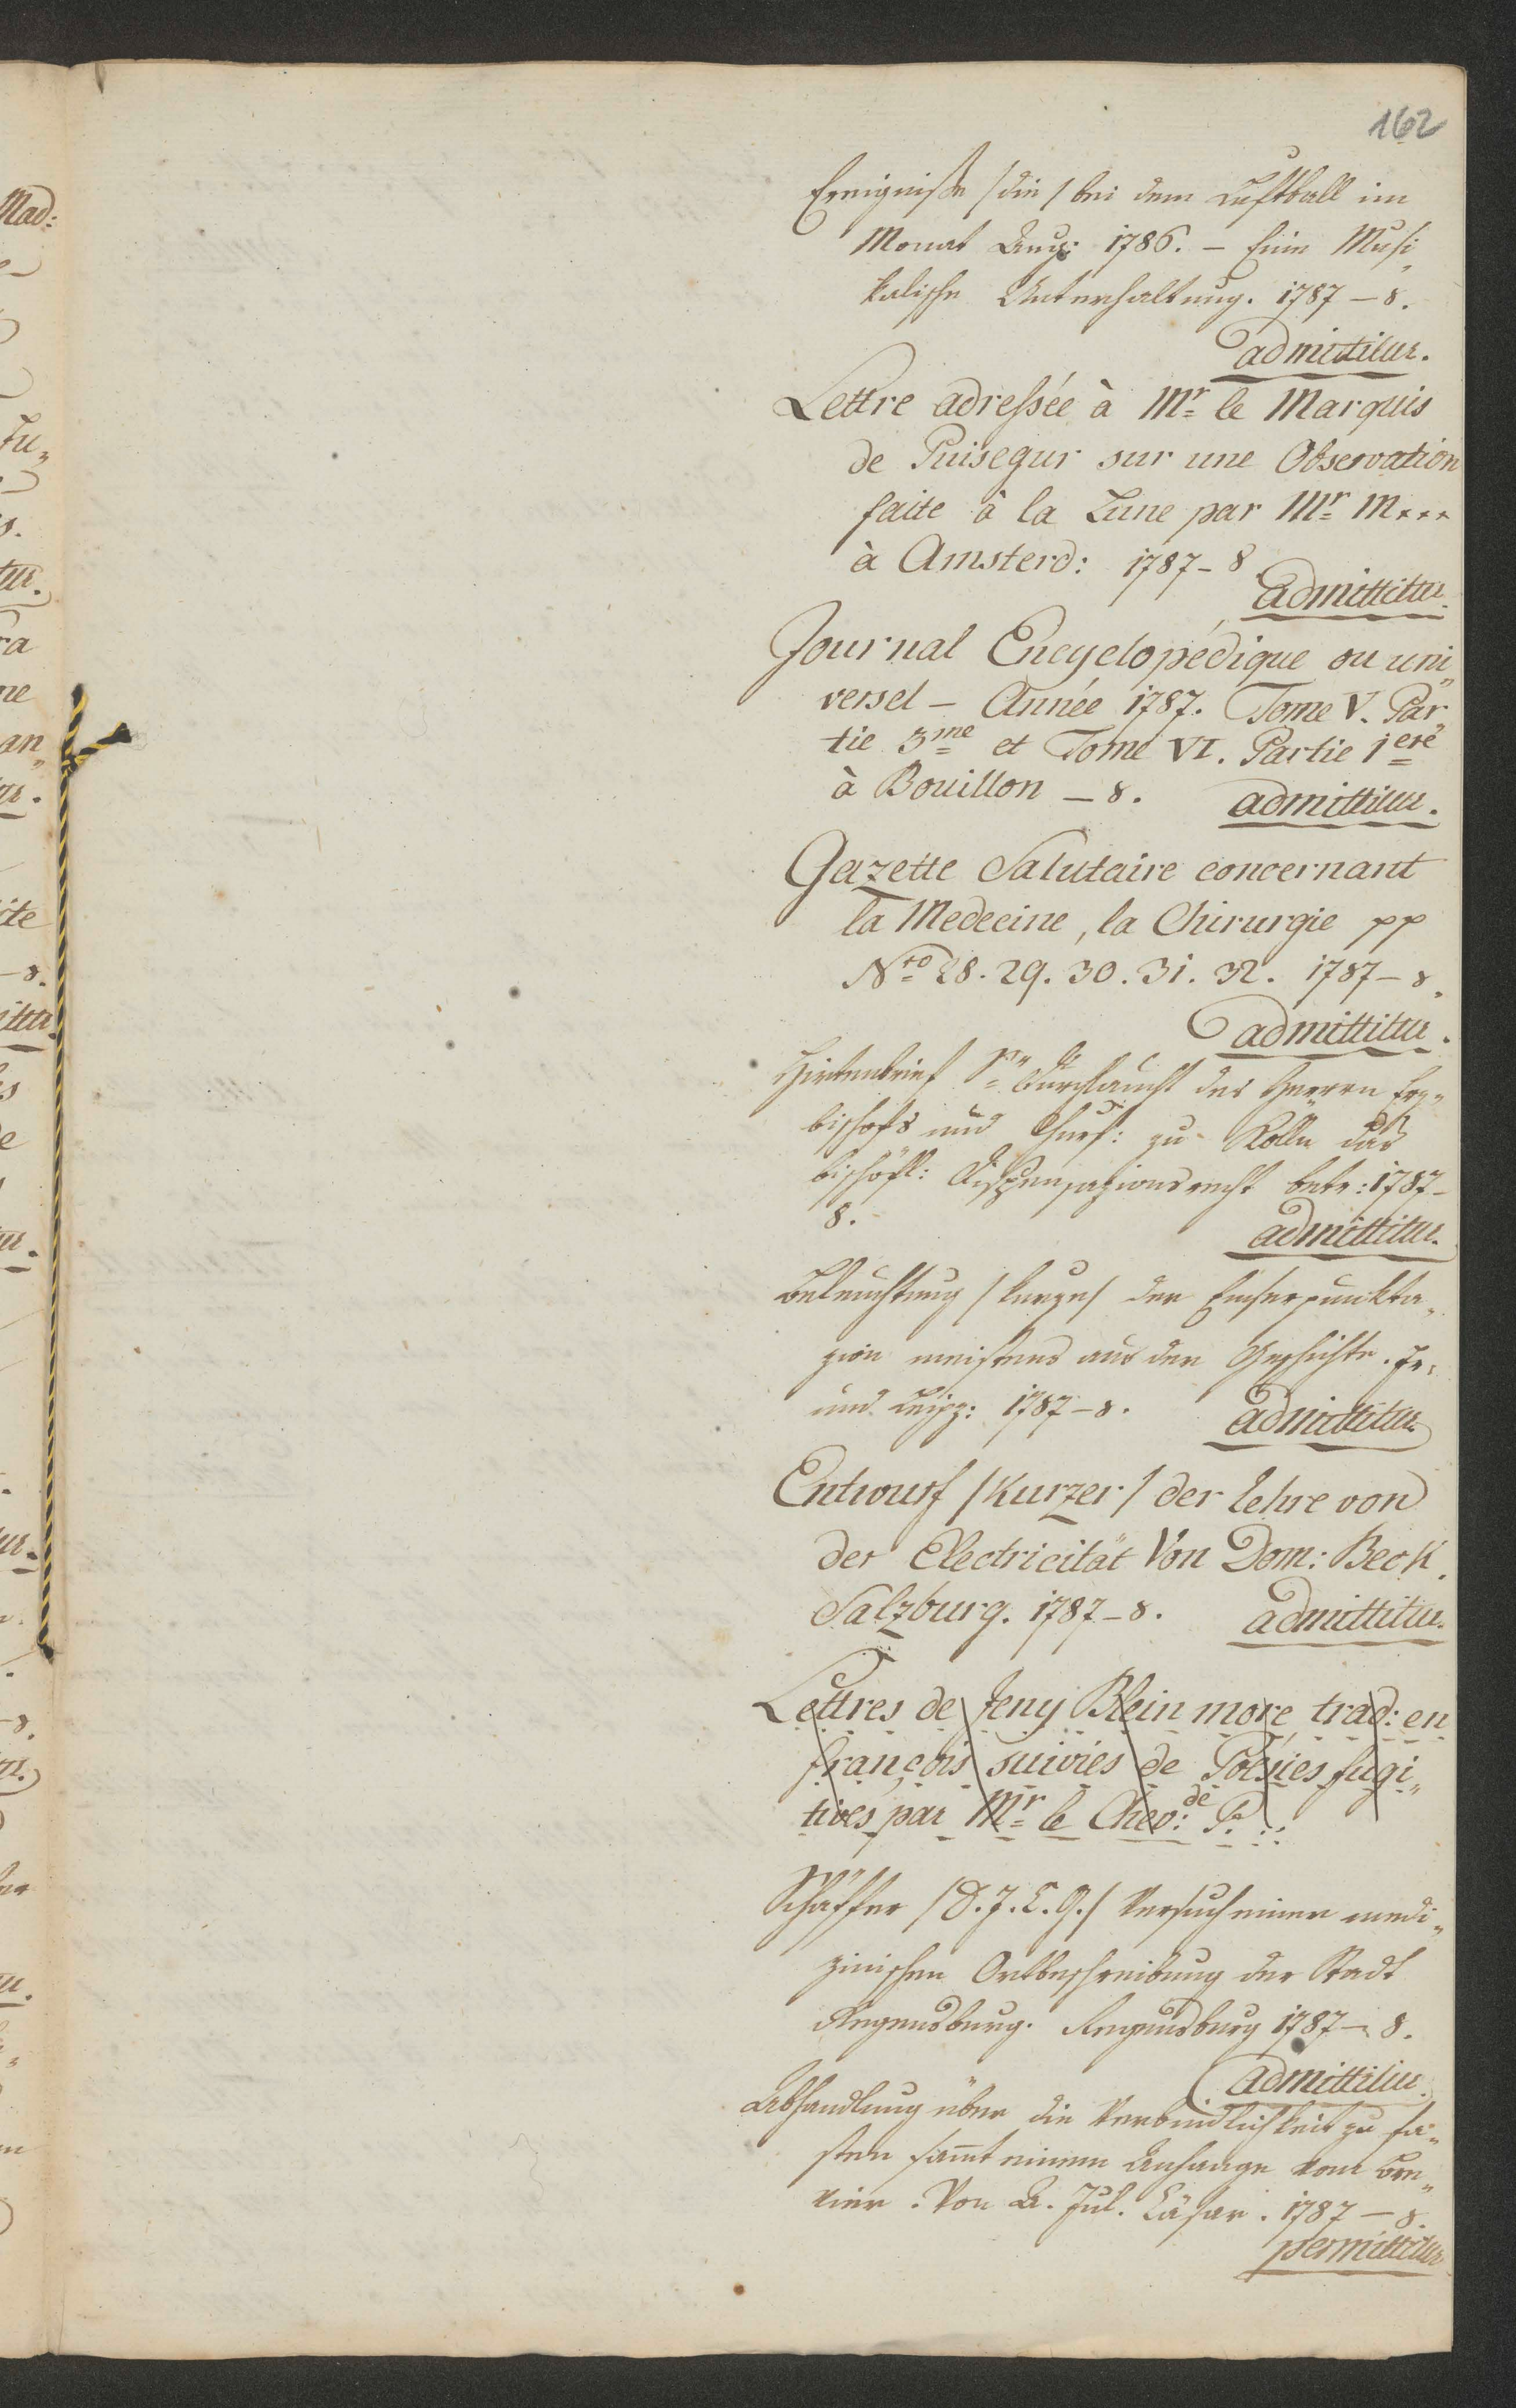 162
Ereigniße /die/ bei dem Luftball im
Monat Aug: 1786. – Eine Musi„
kalische Unterhaltung. 1787 – 8.
admittitur.
Lettre adressée à Mr le Marquis
de Puisegur sur une Observation
faite à la Lune par Mr M***
à Amsterd: 1787 – 8.
admittitur.
Journal Encyclopédique ou uni„
versel – Année 1787. Tome V. Par„
tie 3me et Tome VI. Partie 1ere
à Bouillon – 8. admittitur.
Gazette Salutaire concernant
la Medecine, la Chirurgie pp
Nro 28. 29. 30. 31. 32. 1787 – 8.
admittitur.
Hirtenbrief Sr Durchlaucht des Herrn Erz„
bischofs und Churf: zu Kölln das
bischöfl: Dispensazionsrecht betr: 1787 –
8. admittitur.
Beleuchtung /kurze/ der Emserpunkta„
zion meistens aus der Geschichte. Fr:
und Leipz: 1787 – 8. admittitur.
Entwurf /Kurzer/ der Lehre von
der Electricität Von Dom: Beck.
Salzburg. 1787 – 8. admittitur.
Lettres de Jeny Blein more trad: en
françois suivies de Poesies fugi„
tives par Mr le Chev: de P. ::
Schäffer /D. J. C. G./ Versuch einer medi„
zinischen Ortbeschreibung der Stadt
Regensburg. Regensburg 1787 – 8.
admittitur.
Abhandlung über die Verbindlichkeit zu fa„
sten samt einem Anhange vom Bre„
vier. Von A. Jul. Cäsar. 1787 – 8.
permittitur